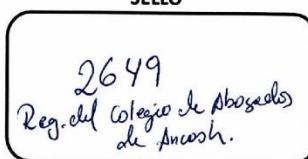 SELLO
2649
Reg. del Colegio de Abogados
de Ancash.